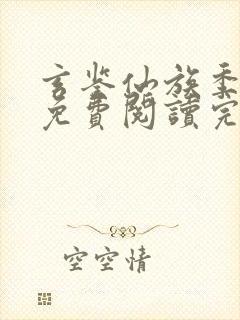 玄鉴仙族季
免費閱讀完
空空情